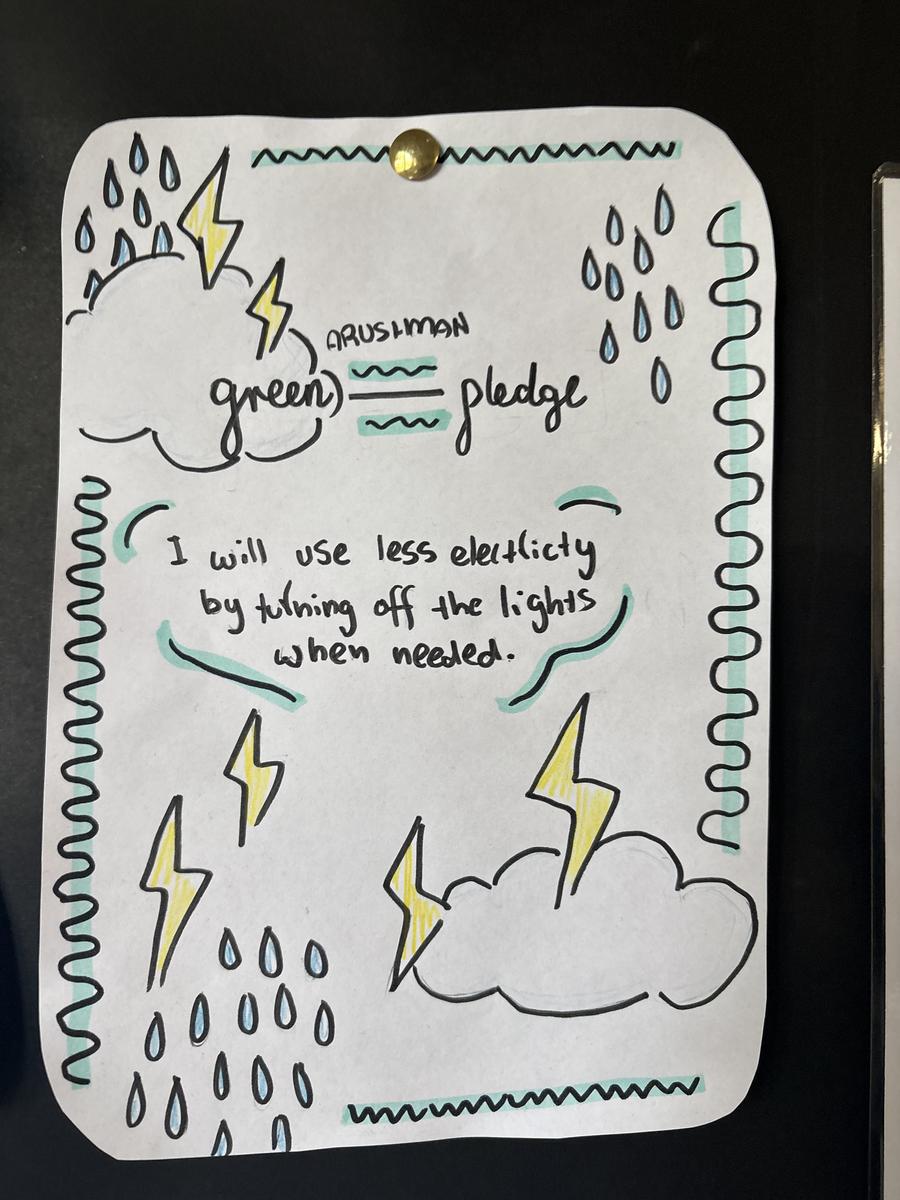 ARUSHMAN
green pledge
I will use less electricty
by turning off the lights
when needed.